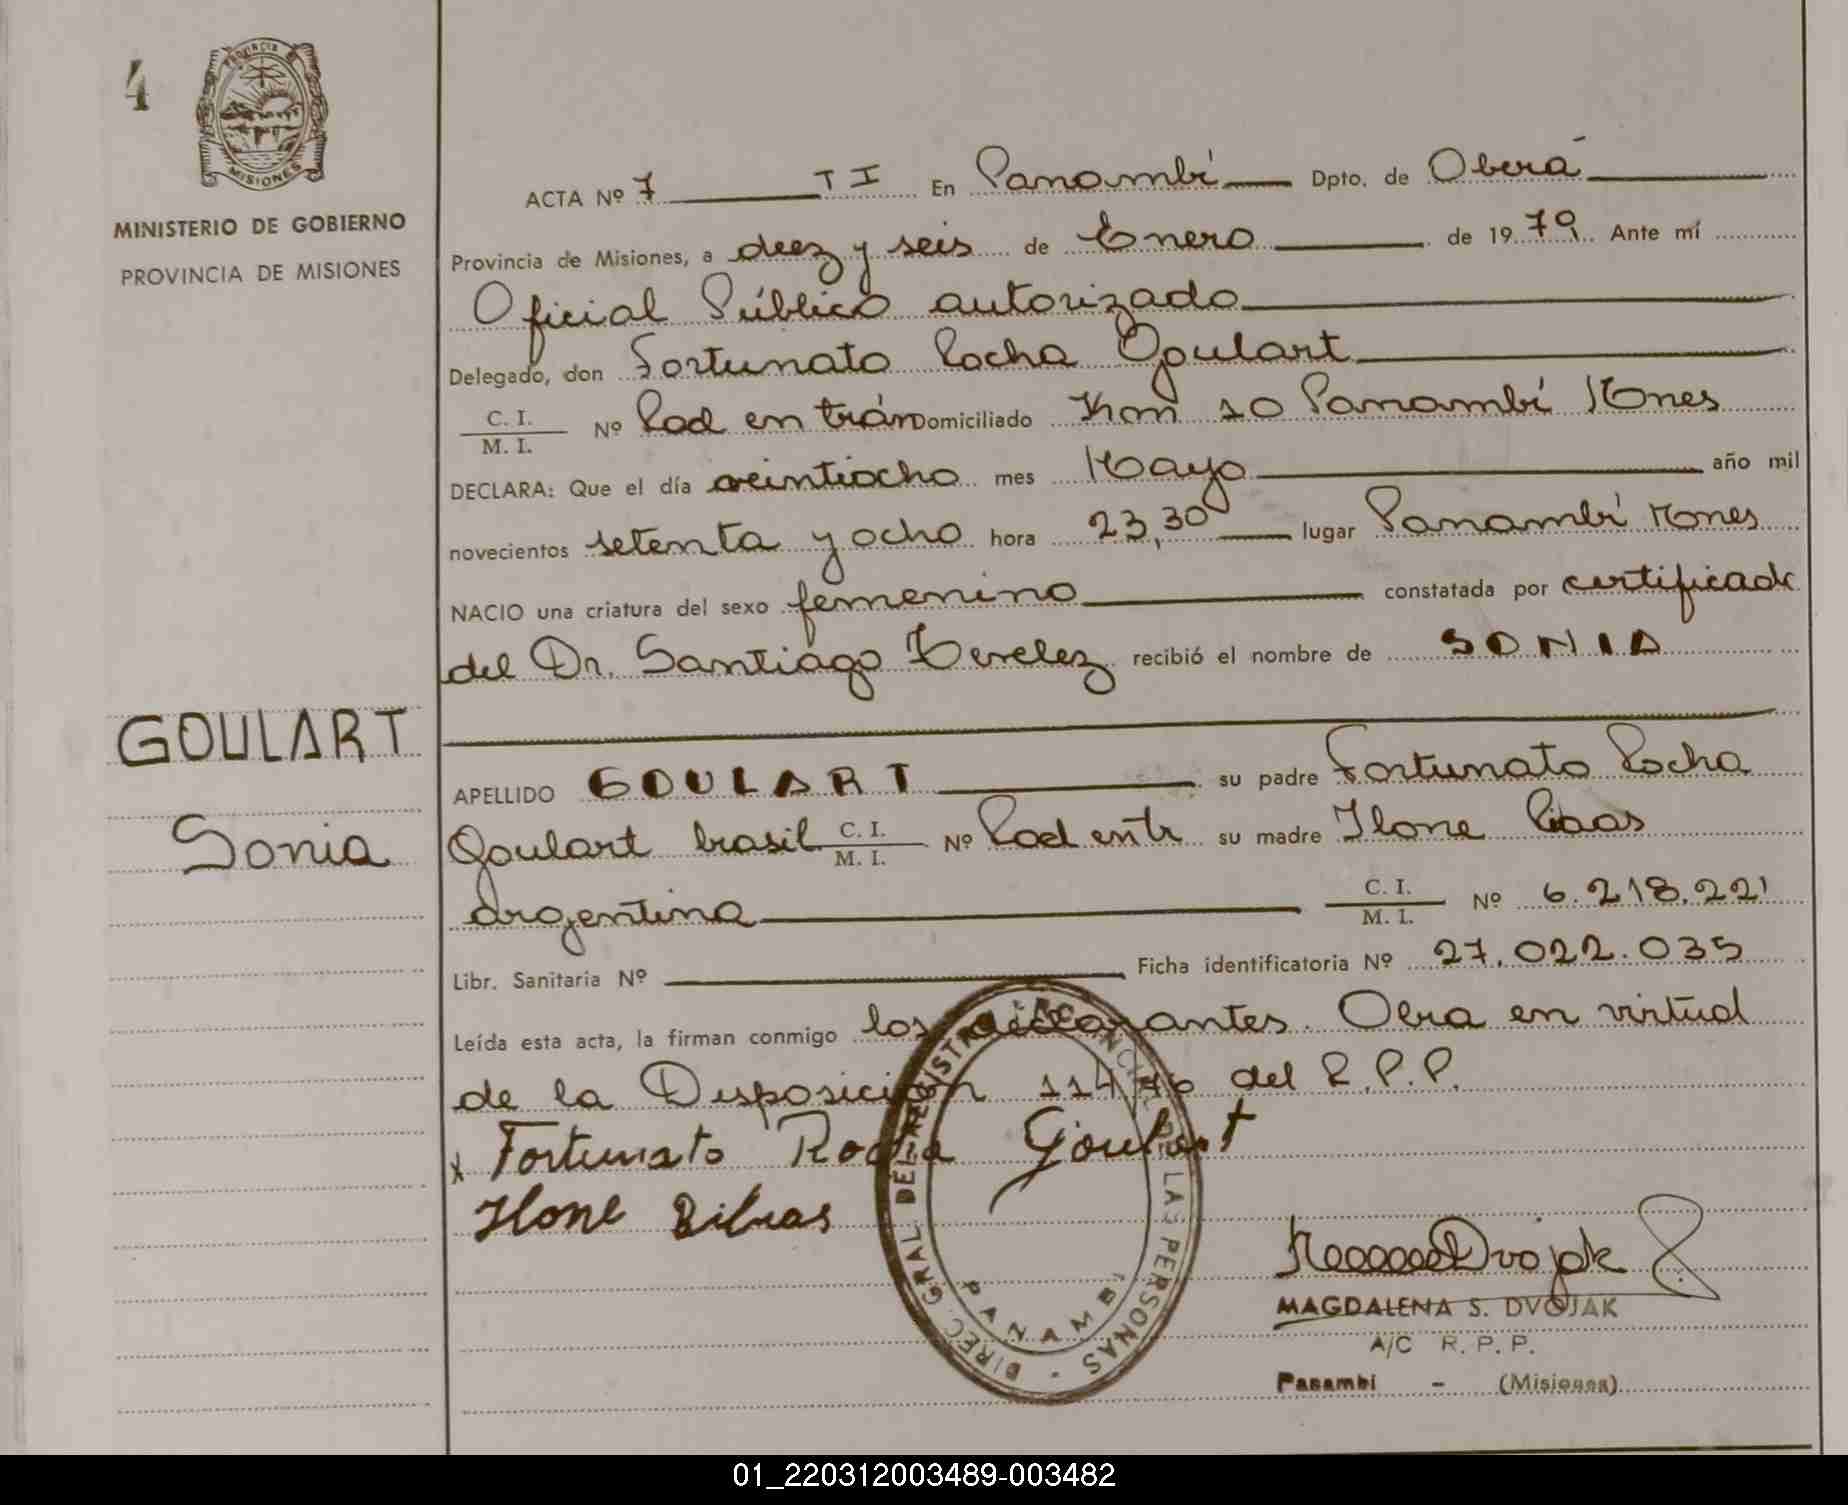 4
PROVINCIA DE
MISIONES
MINISTERIO DE GOBIERNO
PROVINCIA DE MISIONES
ACTA Nº 7 T I En Panambí Dpto. de Oberá
Provincia de Misiones, a diez y seis de Enero de 1979. Ante mí
Oficial Público autorizado
Delegado, don Fortunato Rocha Goulart
C. I.
M. I. Nº Rad en trám Domiciliado Km 10 Panambí Mones
DECLARA: Que el día veintiocho mes Mayo año mil
novecientos setenta y ocho hora 23,30 lugar Panambí Mones
NACIO una criatura del sexo femenino constatada por certificado
del Dr. Santiago recibió el nombre de SONIA
GOULART
Sonia
APELLIDO GOULART su padre Fortunato Rocha
Goulart brasil C. I.
M. I. Nº Rad entr su madre Ilone Ribas
argentina C. I.
M. I. Nº 6.218.221
Libr. Sanitaria Nº Ficha identificatoria Nº 27.022.035
Leída esta acta, la firman conmigo los declarantes. Obra en virtud
de la Disposición 114/76 del R.P.P.
x Fortunato Rocha Goulart
Ilone Ribas
DIREC. GRAL. DEL REGISTRO PROVINCIAL DE LAS PERSONAS
PANAMBI
Dvojak
MAGDALENA S. DVOJAK
A/C R. P. P.
Panambi - (Misiones)
01_220312003489-003482